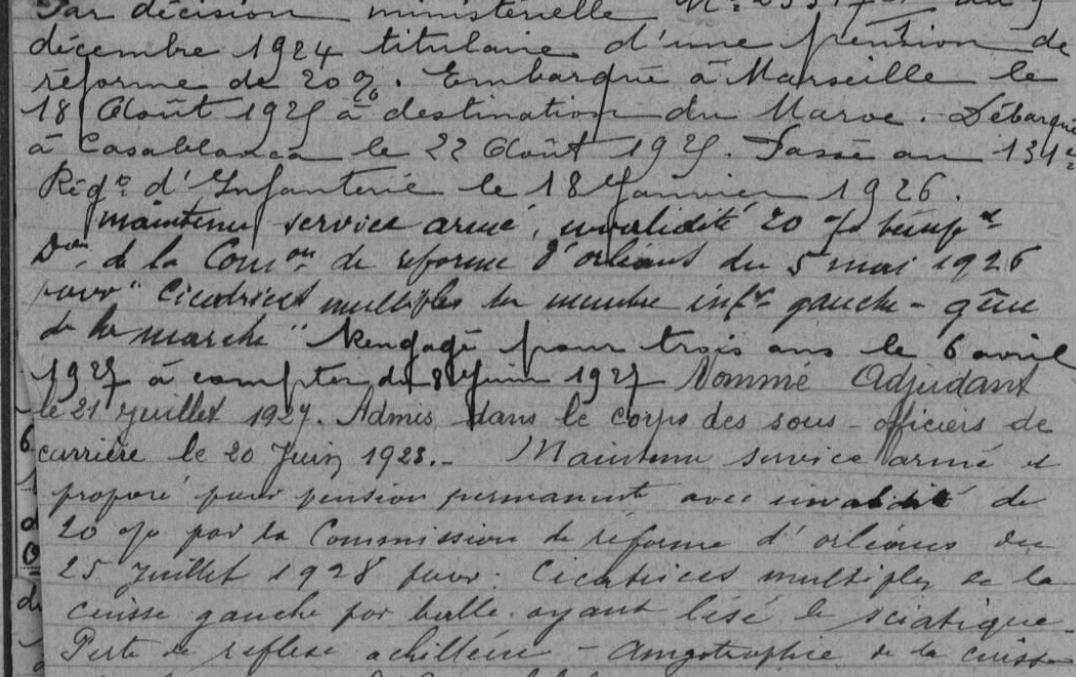 Par décision ministérielle
décembre 1924 titulaire d'une pension de
réforme de 20 %. Embarqué à Marseille le
18 Août 1925 à destination du Maroc. Débarqué
à Casablanca le 22 Août 1925. Passé au 131e
Régt d'Infanterie le 18 Janvier 1926.
maintenu service armé, invalidité 20 %
Don de la Comon de réforme d'orléans du 5 mai 1926
pour "Cicatrices multiples du membre infr gauche - gêne
de la marche" Rengagé pour trois ans le 6 avril
1927 à compter du 8 Juin 1927 Nommé Adjudant
le 21 Juillet 1927. Admis dans le corps des sous-officiers de
carrière le 20 Juin 1928.- Maintenu service armé et
proposé pour pension permanente avec invalidité de
20 % par la Commission de réforme d'orléans du
25 Juillet 1928 pour: Cicatrices multiples de la
cuisse gauche par balle ayant lésé le sciatique -
Perte de reflexe achilléen - Amyotrophie de la cuisse